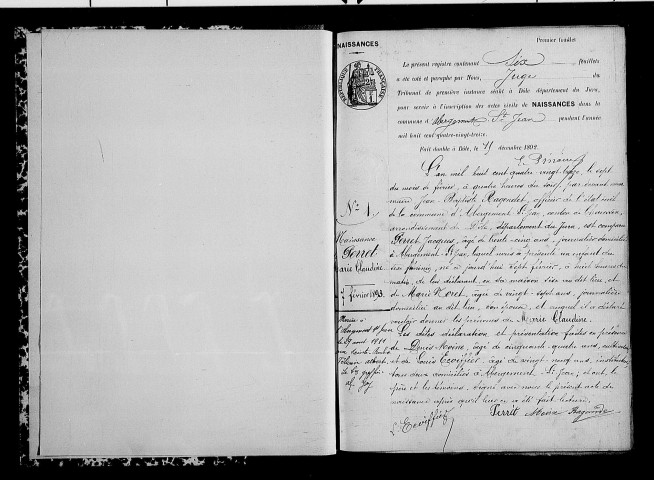 NAISSANCES
Premier feuillet
Le présent registre contenant Six feuillets
a été coté et paraphé par Nous, Juge du
Tribunal de première instance séant à Dôle département du Jura,
pour servir à l'inscription des actes civils de NAISSANCES dans la
commune d'Abergement St Jean pendant l'année
mil huit cent quatre-vingt-treize.
Fait double à Dôle, le 15 décembre 1892.
RÉPUBLIQUE FRANÇAISE
N° 1
Naissance
Perret
Marie Claudine
7 février 1893.
L'an mil huit cent quatre vingt treize, le sept
du mois de février, à quatre heures du soir, par devant nous
maire Jean Baptiste Ragondet, officier de l'état civil
de la commune d'Abergement St Jean, canton de Chaussin,
arrondissement de Dôle, département du Jura, est comparu
Perret Jacques, âgé de trente cinq ans, journalier domicilié
à Abergement St Jean, lequel nous a présenté un enfant du
sexe féminin, né aujourd'hui sept février, à huit heures du
matin, de lui déclarant, en sa maison sise au dit lieu, et
de Marie Moret, âgée de vingt sept ans, journalière
domiciliée au dit lieu, son épouse, et auquel il a déclaré
vouloir donner les prénoms de Marie Claudine.
Les dites déclaration et présentation faites en présence
de Louis Moine, âgé de cinquante quatre ans, cultivateur
et de Louis Ecoiffier, âgé de vingt neuf ans, instituteur
tous deux domiciliés à Abergement St Jean, et ont le
père et les témoins, signé avec nous le présent acte de
naissance après qu'il leur en a été fait lecture.
Perret Moine Ragondet
L. Ecoiffier